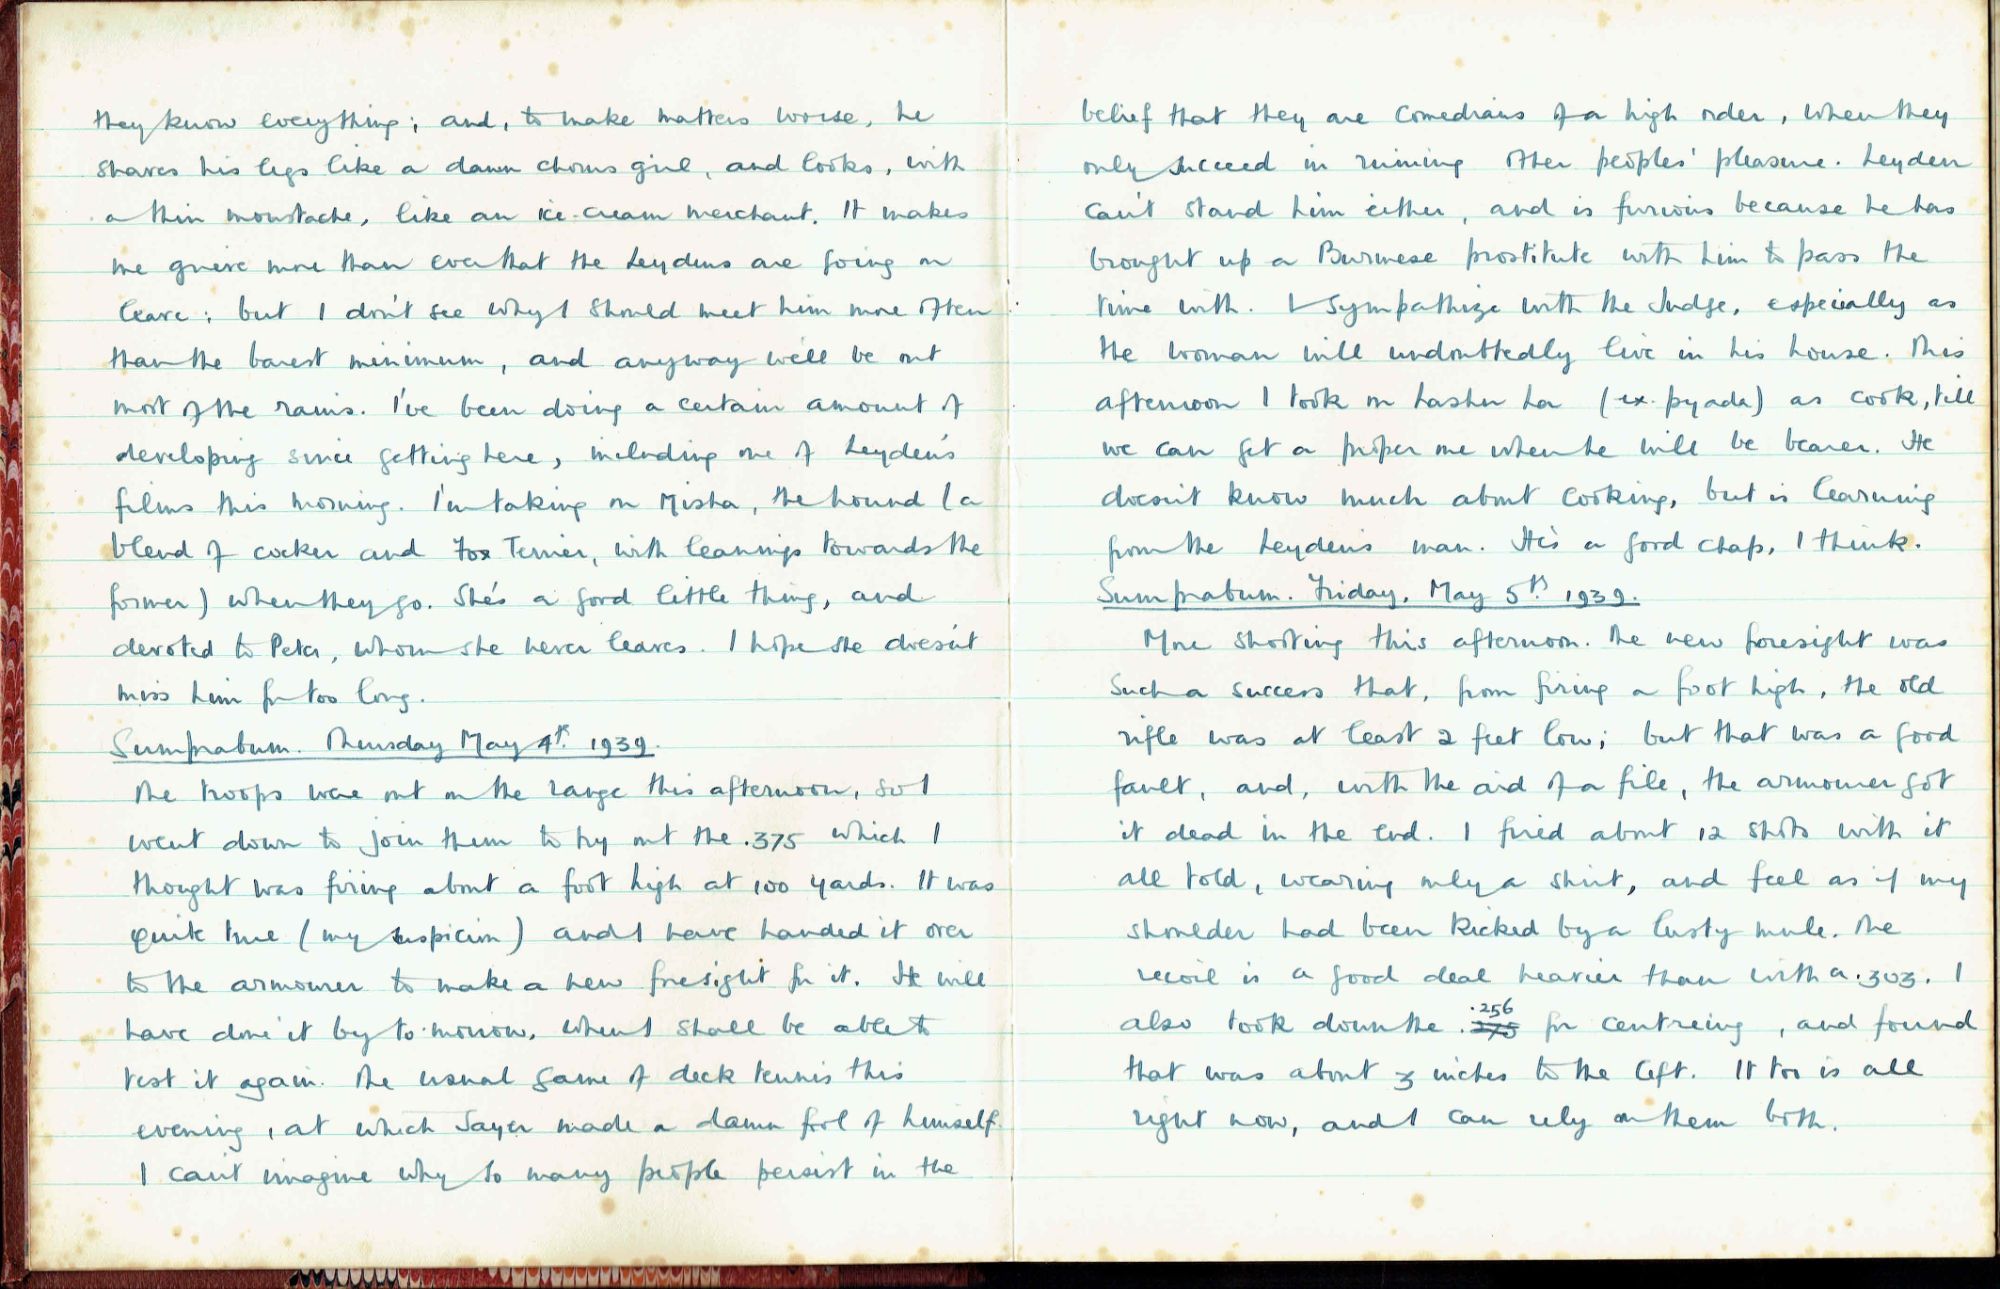 they know everything; and, to make matters worse, he
shaves his legs like a damn chorus girl, and looks, with
a thin moustache, like an ice-cream merchant. It makes
me grieve more than ever that the Leydens are going on
leave; but I don't see why I should meet him more often
than the barest minimum, and anyway we'll be out
most of the rains. I've been doing a certain amount of
developing since getting here, including one of Leyden's
films this morning. I'm taking on Misha, the hound (a
blend of cocker and Fox Terrier, with leanings towards the
former) when they go. She's a good little thing, and
devoted to Peter, whom she never leaves. I hope she doesn't
miss him for too long.
Sumprabum. Thursday May 4th. 1939.
The troops were out on the range this afternoon, so I
went down to join them to try out the .375 which I
thought was firing about a foot high at 100 yards. It was
quite true (my suspicion) and I have handed it over
to the armourer to make a new foresight for it. He will
have done it by to-morrow, when I shall be able to
test it again. The usual game of deck tennis this
evening, at which Sayer made a damn fool of himself.
I can't imagine why so many people persist in the
belief that they are comedians of a high order, when they
only succeed in ruining other peoples' pleasure. Leyden
can't stand him either, and is furious because he has
brought up a Burmese prostitute with him to pass the
time with. I sympathize with the Judge, especially as
the woman will undoubtedly live in his house. This
afternoon I took on (ex-pyada) as cook, till
we can get a proper one when he will be bearer. He
doesn't know much about cooking, but is learning
from the Leyden's man. He's a good chap, I think.
Sumprabum. Friday, May 5th. 1939.
More shooting this afternoon. The new foresight was
such a success that, from firing a foot high, the old
rifle was at least 2 feet low; but that was a good
fault, and, with the aid of a file, the armourer got
it dead in the end. I fired about 12 shots with it
all told, wearing only a shirt, and feel as if my
shoulder had been kicked by a lusty mule. The
recoil is a good deal heavier than with a .303. I
also took down the .375 .256 for centreing, and found
that was about 3 inches to the left. It too is all
right now, and I can rely on them both.